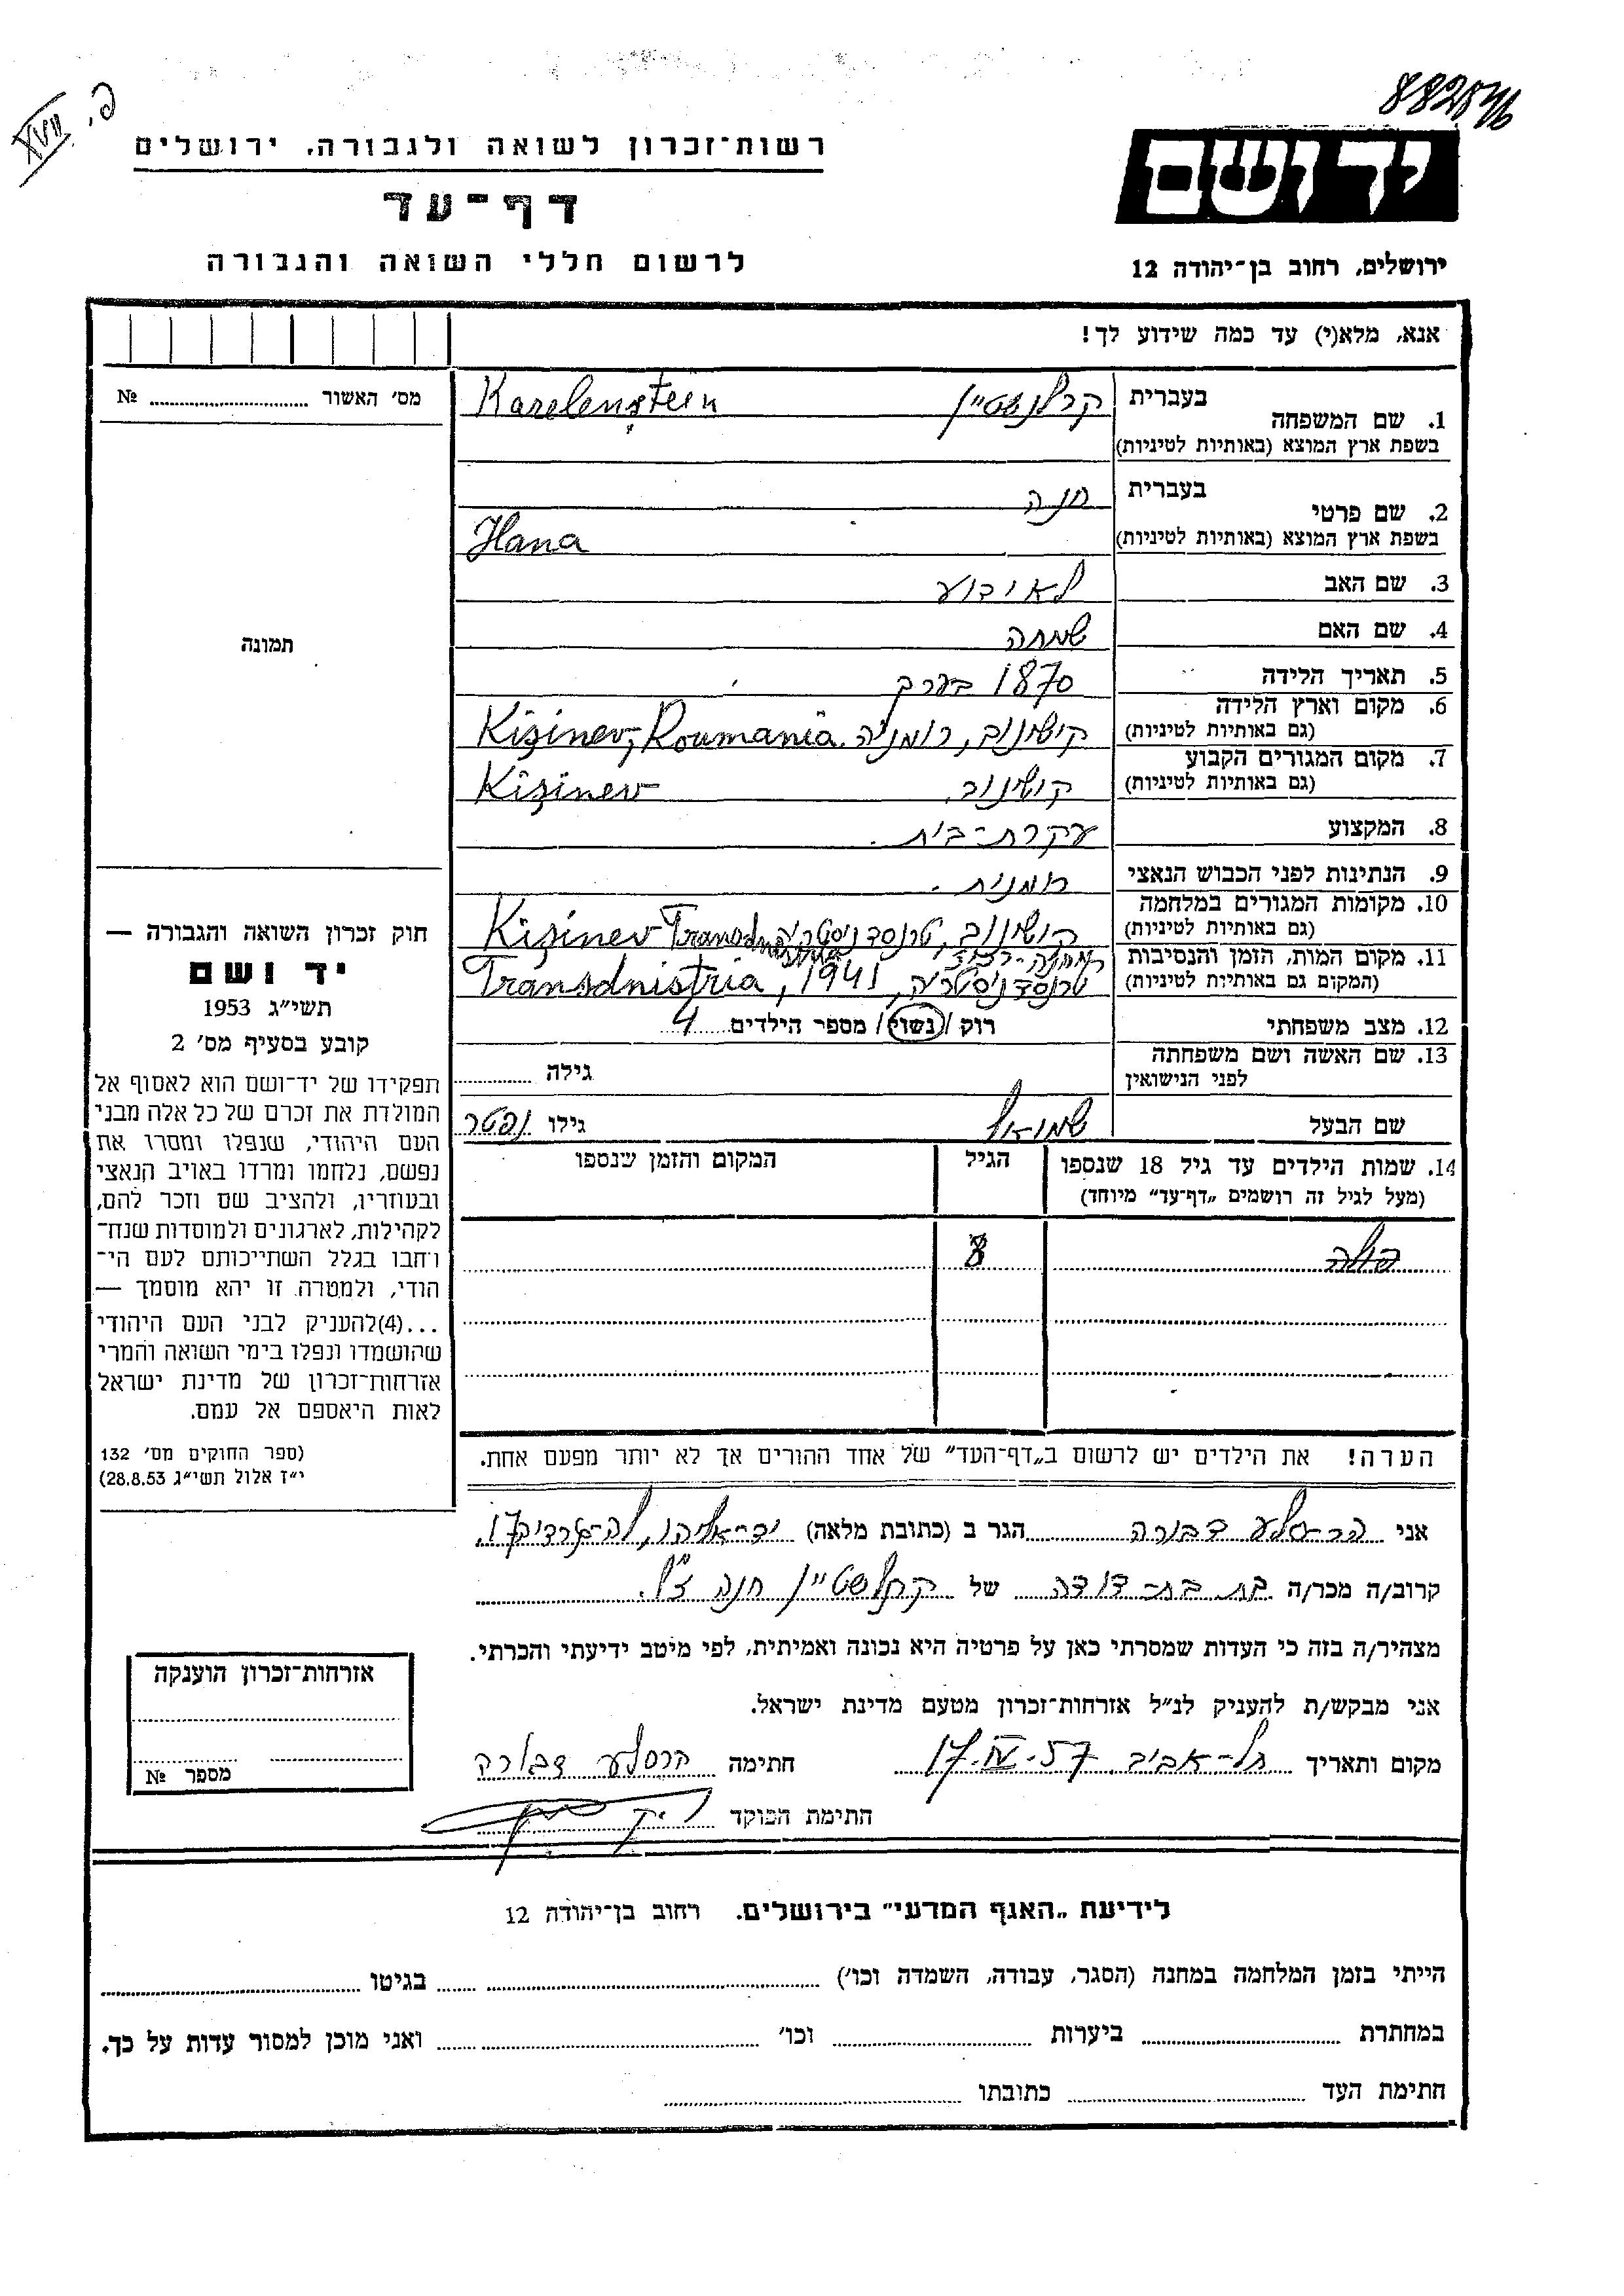 פ. XVII
882546
רשות־זכרון לשואה ולגבורה. ירושלים
יד ושם
דף־עד
לרשום חללי השואה והגבורה
ירושלים, רחוב בן־יהודה 12
אנא, מלא(י) עד כמה שידוע לך!
מס׳ האשור № 
1. שם המשפחה בעברית קרלנשטיין Karelenştein
בשפת ארץ המוצא (באותיות לטיניות)
2. שם פרטי בעברית חנה
בשפת ארץ המוצא (באותיות לטיניות) Hana
3. שם האב לאיבוע
4. שם האם שמחה
תמונה
5. תאריך הלידה 1870 בערך
6. מקום וארץ הלידה קישינוב, רומניה. Kişinev, Roumania
(גם באותיות לטיניות)
7. מקום המגורים הקבוע קישינוב. Kişinev
(גם באותיות לטיניות)
8. המקצוע עקרת־בית.
9. הנתינות לפני הכבוש הנאצי רומנית.
10. מקומות המגורים במלחמה קישינוב, טרנסדניסטריה Kişinev Transdnistria
(גם באותיות לטיניות)
11. מקום המות, הזמן והנסיבות
(המקום גם באותיות לטיניות) טרנסדניסטריה, 1941, Transdnistria
12. מצב משפחתי רוק / נשוי / מספר הילדים 4
13. שם האשה ושם משפחתה גילה
לפני הנישואין
שם הבעל שמואל גילו נפטר
14. שמות הילדים עד גיל 18 שנספו הגיל המקום והזמן שנספו
(מעל לגיל זה רושמים „דף־עד״ מיוחד)
8
חוק זכרון השואה והגבורה —
יד ושם
תשי״ג 1953
קובע בסעיף מס׳ 2
תפקידו של יד־ושם הוא לאסוף אל
המולדת את זכרם של כל אלה מבני
העם היהודי, שנפלו ומסרו את
נפשם, נלחמו ומרדו באויב הנאצי
ובעוזריו, ולהציב שם וזכר להם,
לקהילות, לארגונים ולמוסדות שנח־
רחבו בגלל השתייכותם לעם הי־
הודי, ולמטרה זו יהא מוסמך —
...(4) להעניק לבני העם היהודי
שהושמדו ונפלו בימי השואה והמרי
אזרחות־זכרון של מדינת ישראל
לאות היאספם אל עמם.
(ספר החוקים מס׳ 132
י״ז אלול תשי״ג 28.8.53)
הערה! את הילדים יש לרשום ב„דף־העד״ של אחד ההורים אך לא יותר מפעם אחת.
אני דבורה הגר ב (כתובת מלאה) יד־אליהו, 17
קרוב/ה מכר/ה בת בת־דודה של קרלשטיין חנה ז״ל.
מצהיר/ה בזה כי העדות שמסרתי כאן על פרטיה היא נכונה ואמיתית, לפי מיטב ידיעתי והכרתי.
אני מבקש/ת להעניק לנ״ל אזרחות־זכרון מטעם מדינת ישראל.
מקום ותאריך תל־אביב 17.IV.57 חתימה דבורה
חתימת הפוקד
אזרחות־זכרון הוענקה
מספר №
לידיעת „האגף המדעי״ בירושלים. רחוב בן־יהודה 12
הייתי בזמן המלחמה במחנה (הסגר, עבודה, השמדה וכו׳) בגיטו
במחתרת ביערות וכו׳ ואני מוכן למסור עדות על כך.
חתימת העד כתובתו